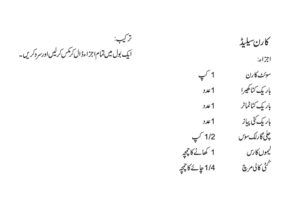 کارن سیلیڈ
اجزاء:
سوئٹ کارن 1 کپ
باریک کٹا کھیرا 1 عدد
باریک کٹا ٹماٹر 1 عدد
باریک کٹی پیاز 1 عدد
چلی گارلک سوس 1/2 کپ
لیموں کا رس 1 کھانے کا چمچ
کٹی کالی مرچ 1/4 چائے کا چمچ
ترکیب:
ایک بول میں تمام اجزاء ڈال کر مکس کر لیں اور سرو کریں۔